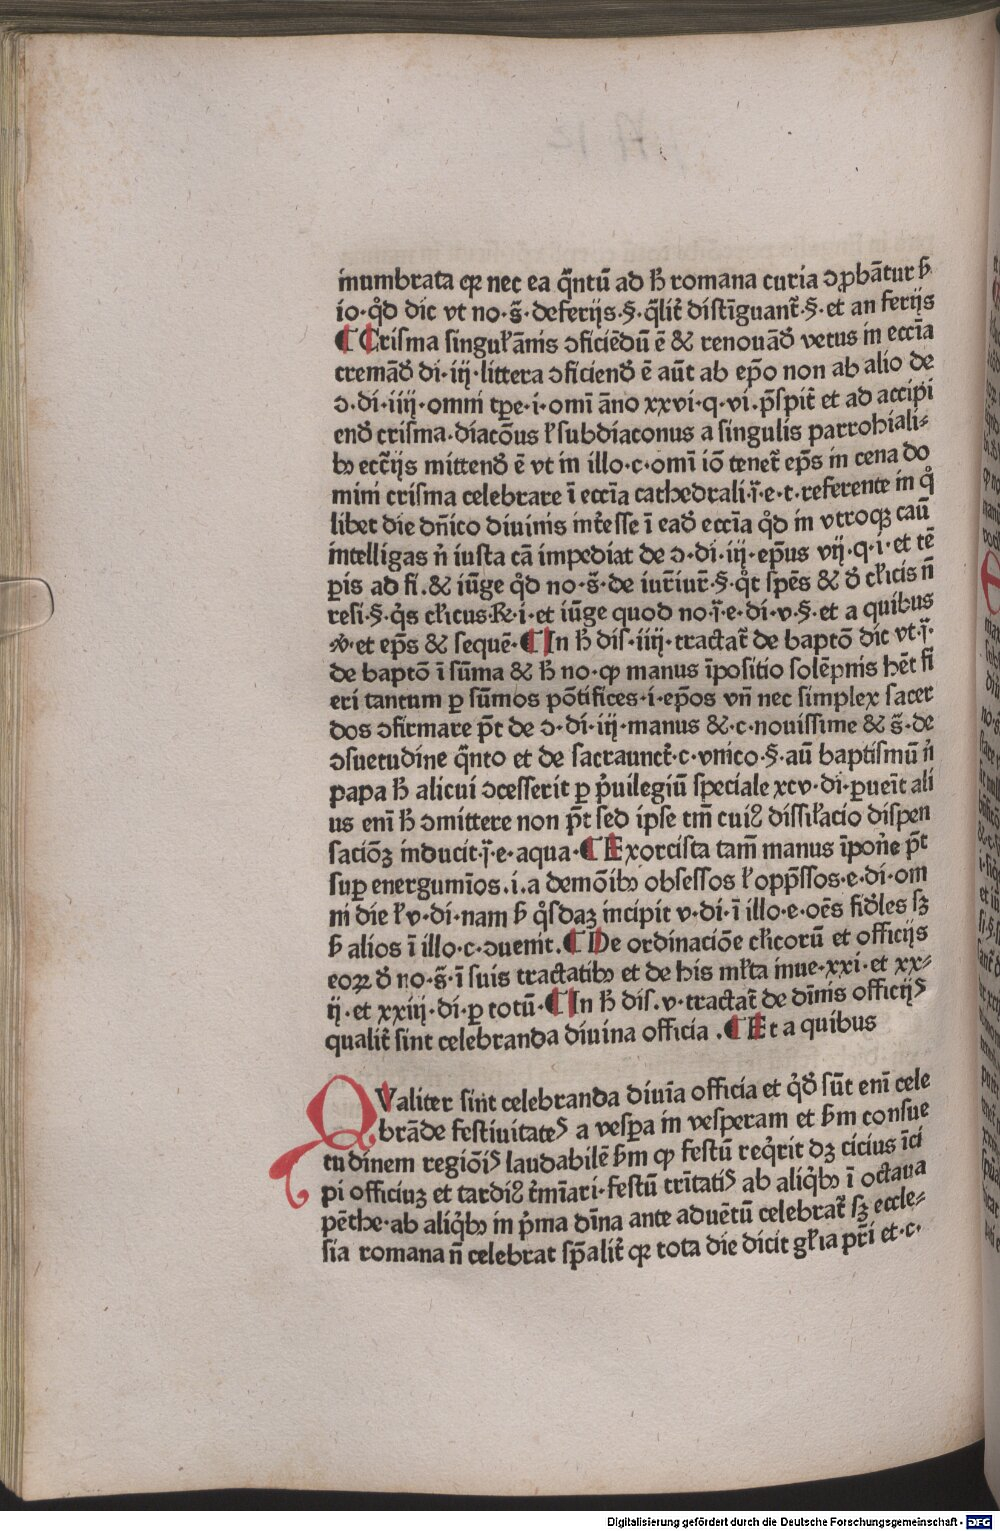 inumbrata qꝛ nec ea q̄ntū ad h̄ romana curia ɔꝓbāntur h̄
io·qͦd dic̄ vt no·s̄·deferijs·§·q̄lit̄ distīguant̄·§·et an ferijs
¶ Crisma singul̵ āmis ɔficiēdū ē & renouād̄ vetus in ecc̄ia
cremād̄ di·iij·littera ɔficiend̄ ē aūt ab ep̄o non ab alio de
ɔ·di·iiij·omni tp̄e·i·omī āno xxvi·q·vi·p̄spit̄ et ad accipi
end̄ crisma·diacōus l̵ subdiaconus a singulis parrohiali⸗
bꝫ ecc̄ijs mittend̄ ē vt in illo·c·omī iō tenet̄ ep̄s in cena do
mini crisma celebrare ī ecc̄ia cathedrali·j̄·e·t·referente in qͦ
libet die dn̄ico diuinis int̄esse ī ead̄ ecc̄ia qͦd in vtroqꝫ caū
intelligas n̄ iusta cā impediat de ɔ·di·iij·ep̄us vij·q·i·et tē
ꝑis ad fi·& iūge qͦd no·s̄·de iur̄iur̄·§·qͦt spēs & d̄ cl̵icis n̄
resi·§·qͥs cl̵icus·℞·i·et iūge quod no·j̄·e·di·v·§·et a quibus
℣·et ep̄s & sequē·¶ In h̄ dis·iiij·tractat̄ de baptō dic̄ vt·j̄·
de baptō ī sūma & h̄ no·ꝙ manus īpositio solēpnis hēt fi
eri tantum ꝑ sūmos pōtifices·i·ep̄os vn̄ nec simplex sacer
dos ɔfirmare p̄t de ɔ·di·iij·manus &·c·nouissime & s̄·de
ɔsuetudine q̄nto et de sacraunct̄·c·vnico·§·aū baptismū n̄
papa h̄ alicui ɔcesserit ꝑ p̄uilegiū speciale xcv·di·ꝑueīt ali
us enī h̄ ɔmittere non p̄t sed ipse tm̄ cuiꝰ dissil̵acio dispen
saciōꝫ inducit·j̄·e·aqua·¶ Exorcista tam̄ manus īpon̄e p̄t
suꝑ energumīos.i.a demōibꝫ obsessos l̵ opp̄ssos·e·di·om
ni die l̵ v·di·nam h̄ qͥsdaꝫ incipit v·di·ī illo·e·oēs fid̄les sꝫ
h̄ alios ī illo·c·ɔuenit.¶ De ordinaciōe cl̵icorū et officijs
eoꝝ d̄ no·s̄·ī suis tractatibꝫ et de his ml̵ta inue·xxi·et xx⸗
ij·et xxiij·di·ꝑ totū·¶ In h̄ dis.v·tractat̄ de dīnis officijꝰ
qualit̄ sint celebranda diuina officia .¶ Et a quibus
QValiter sint celebranda diuīa officia et qͦd sūt enī cele
brāde festiuitateꝰ a vesꝑa in vesperam et h̄m consue
tudinem regiōiꝰ laudabilē h̄m ꝙ festū reqͥrit dꝫ cicius īci
pi officiuꝫ et tardiꝰ t̄mīari·festū trītatiꝰ ab aliqͥbꝫ ī octaua
pēthe·ab aliqͥbꝫ in p̄ma dn̄a ante aduētū celebrat̄ sꝫ eccle⸗
sia romana n̄ celebrat sp̄alit̄ qꝛ tota die dicit gl̵ia pr̄i et·c·
Digitalisierung gefördert durch die Deutsche Forschungsgemeinschaft - DFG